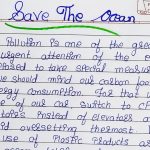 Save The Ocean
Pollution is one of the grea
urgent attention of the e
posed to take special measur
we should mind our carbon foo
ergy consumption. For that
of our car, switch to CF
tairs instead of elevators a
id oversetting thermost
use of Plastic Products ar